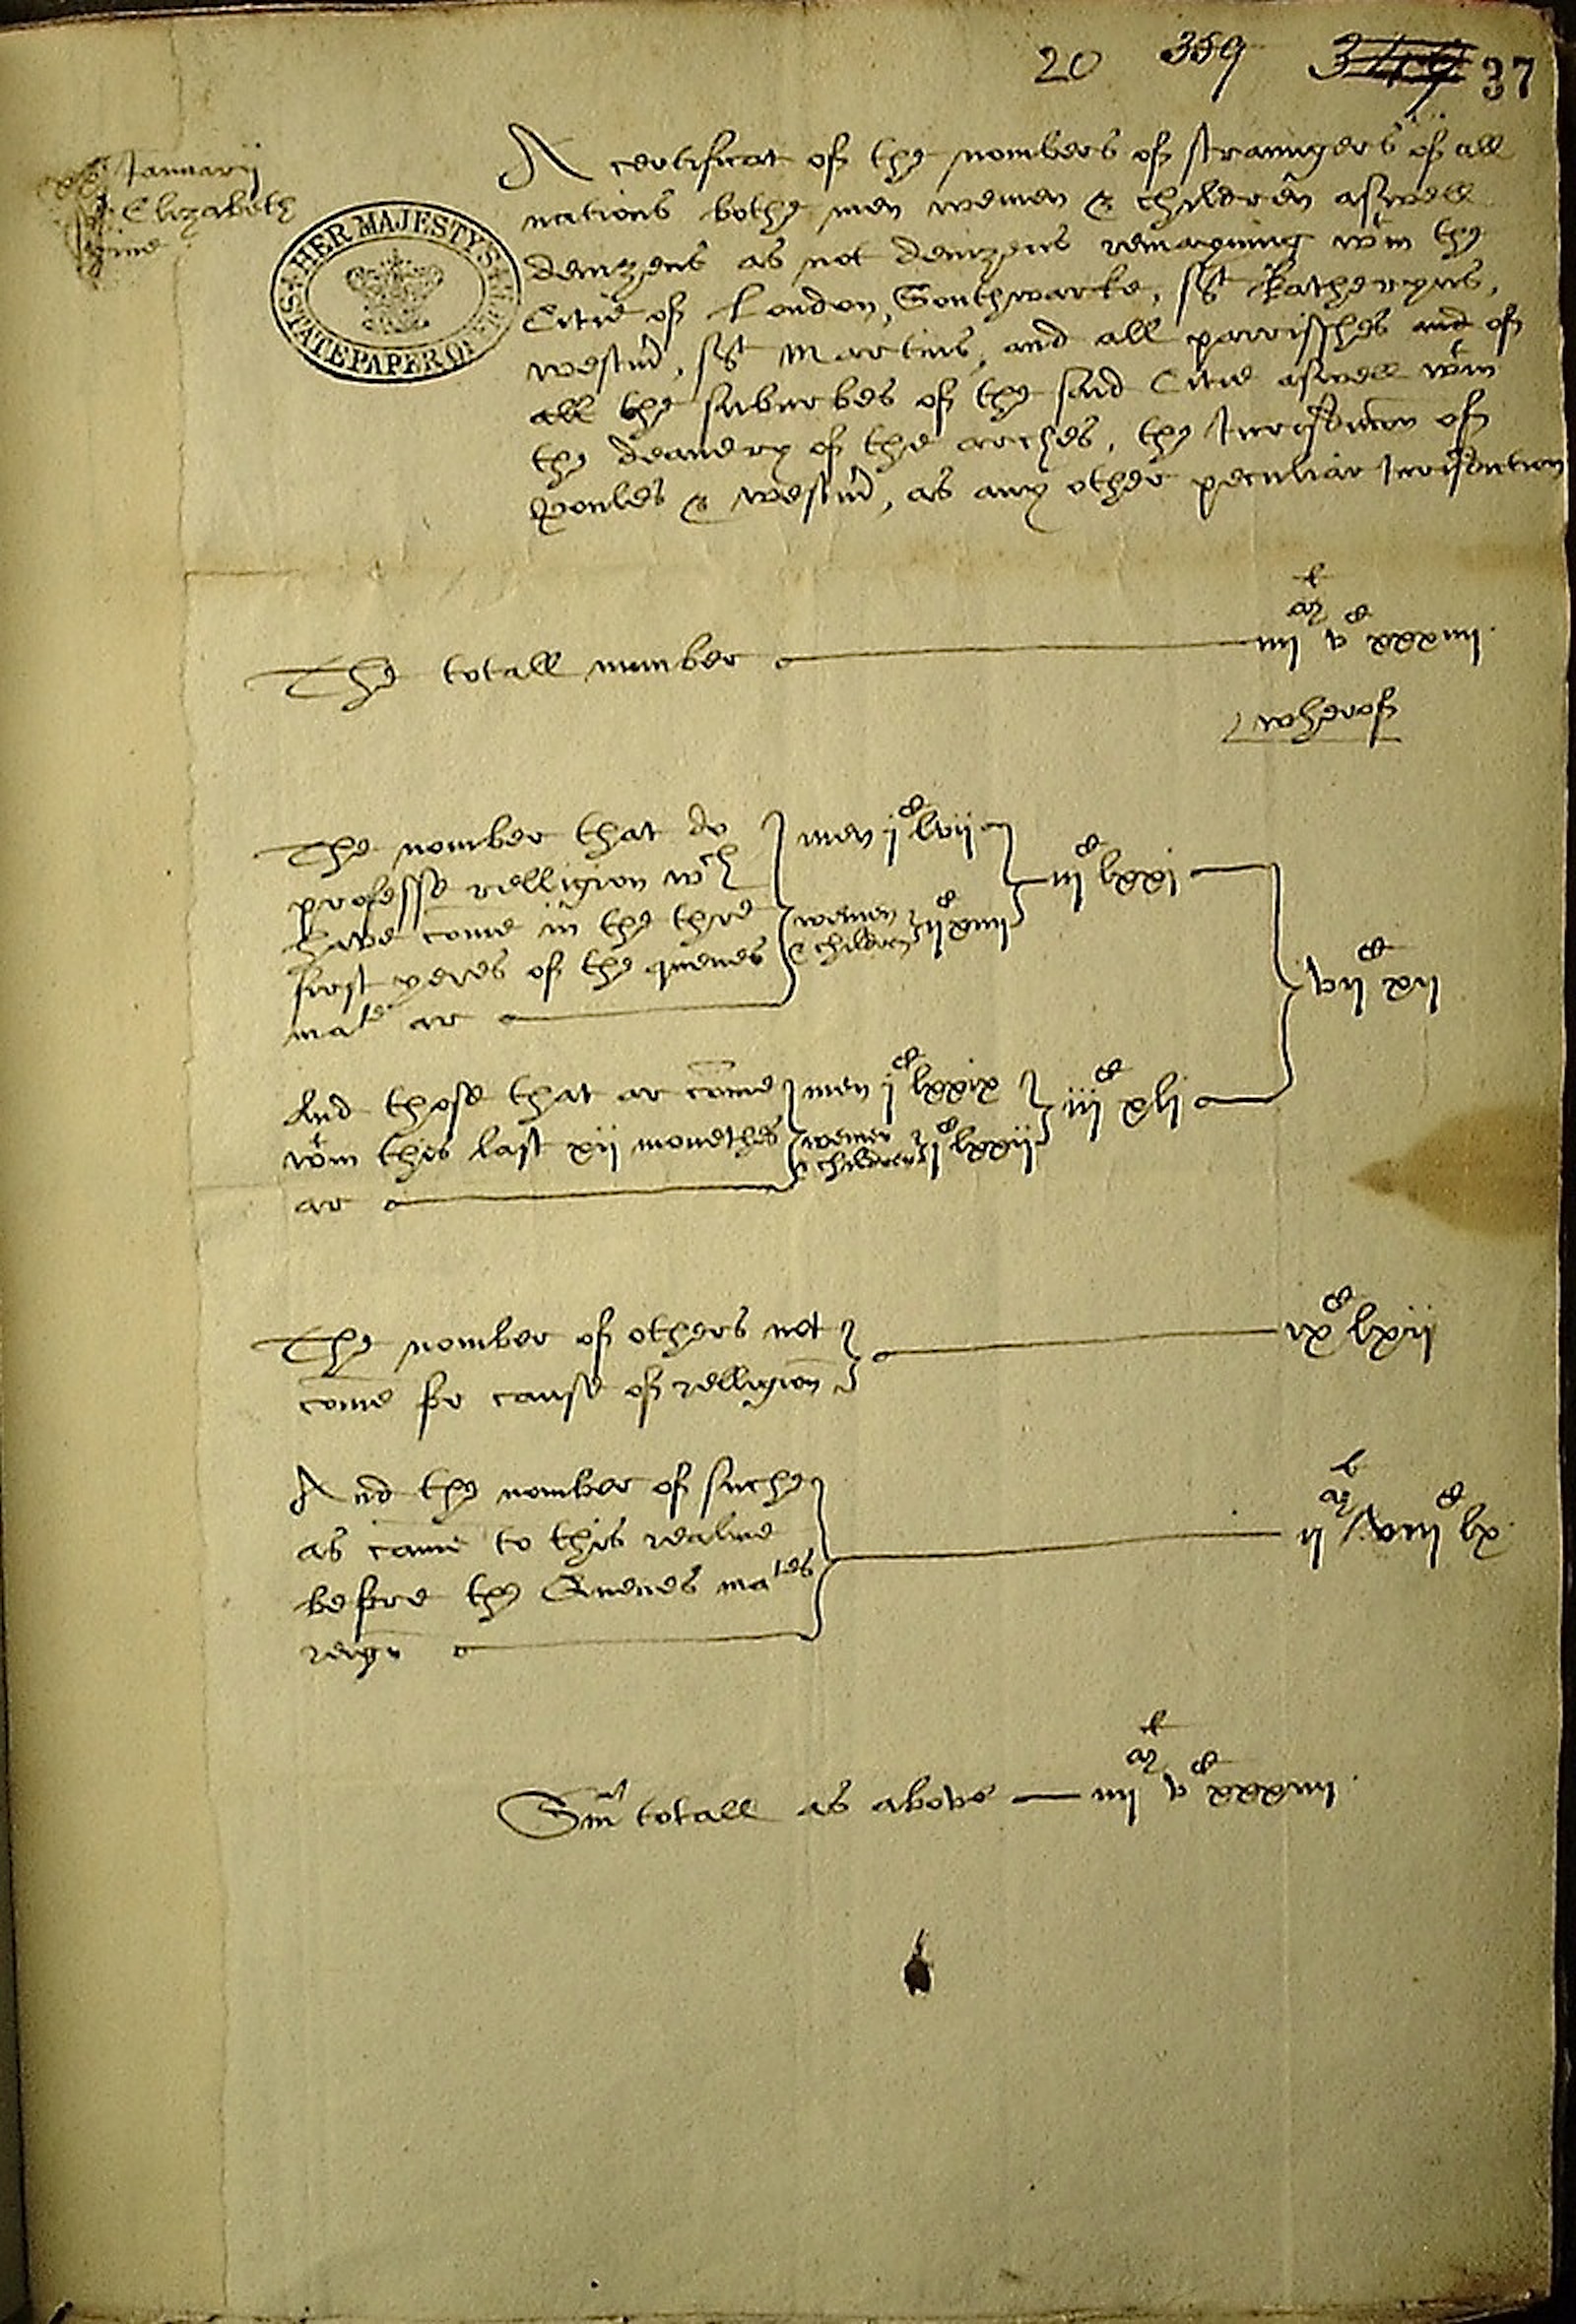 20 359 349 37
Januarij
Elizabeth
HER MAJESTY'S
STATE PAPER OFFICE
A certificat of the nombers of straungers of all
nations bothe men wemen & children aswell
denizens as not denizens remayning wtin the
Citie of London, Southwarke, st Katheryns,
westmr, st Martins, and all parrisshes and of
all the suburbes of the said Citie aswell wtin
the deanery of the arches, the Jurisdiction of
Poules & westmr, as any other peculiar Jurisdiction
The totall number iiij ml v c xxxiiij
wherof
The nomber that do
professe relligion wch
have come in the thre
first yeres of the quenes
matie ar
men j c lvij
wemen & children ij c xiiij
iij c lxxi
And those that ar come
wtin this last xij monethes
ar
men j c lxxix
wemen & children j c lxxij
iij c xli
vij c xij
The nomber of others not
come for cause of relligion
ix c lxij
And the nomber of suche
as came to this realme
before the Quenes maties
reign
ij ml viij c lx
Sm totall as above iiij ml v c xxxiiij